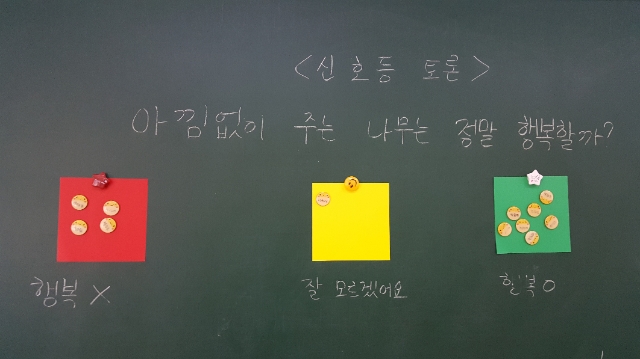 <신호등 토론>
아낌없이 주는 나무는 정말 행복할까?
행복 X
잘 모르겠어요
행복 O